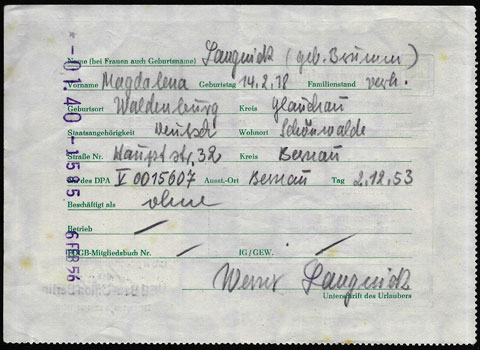 Name (bei Frauen auch Geburtsname) Langnick (geb. Brumm)
Vorname Magdalena Geburtstag 14.2.18 Familienstand verh.
Geburtsort Waldenburg Kreis Glauchau
Staatsangehörigkeit Deutsch Wohnort Schönwalde
Straße Nr. Hauptstr. 32 Kreis Bernau
des DPA V 0015607 Ausst.-Ort Bernau Tag 2.12.53
Beschäftigt als ohne
Betrieb /
FDGB-Mitgliedsbuch Nr. / IG/GEW. /
Werner Langnick
Unterschrift des Urlaubers
01.40